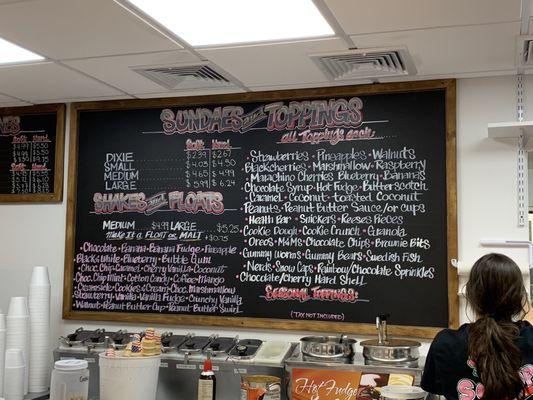 SUNDAES AND TOPPINGS
all Toppings each
Soft Hard
DIXIE $2.39 $2.67
SMALL $4.03 $4.50
MEDIUM $4.65 $4.99
LARGE $5.99 $6.24
SHAKES AND FLOATS
MEDIUM $4.99 LARGE $5.25
Make it a FLOAT or MALT +$0.75
Chocolate • Banana • Banana Fudge • Pineapple
Black & White • Blueberry • Bubble Gum
Choc. Chip • Caramel • Cherry Vanilla • Coconut
Choc. Chip Mint • Cotton Candy • Coffee • Mango
Creamsicle • Cookies & Cream • Choc. Marshmallow
Strawberry • Vanilla • Vanilla Fudge • Crunchy Vanilla
Walnut • Peanut Butter Cup • Peanut Butter Swirl
• Strawberries • Pineapples • Walnuts
• Blackcherries • Marshmallow • Raspberry
Maraschino Cherries • Blueberry • Bananas
• Chocolate Syrup • Hot Fudge • Butterscotch
Caramel • Coconut • Toasted Coconut
Peanuts • Peanut Butter Sauce/or cups
• Health Bar • Snickers • Reeses Pieces
Cookie Dough • Cookie Crunch • Granola
Oreos • M&Ms • Chocolate Chips • Brownie Bits
Gummy Worms • Gummy Bears • Swedish Fish
• Nerds • Snow Caps • Rainbow/Chocolate Sprinkles
•Chocolate/Cherry Hard Shell
SEASONAL TOPPINGS:
(TAX NOT INCLUDED)
Hot Fudge